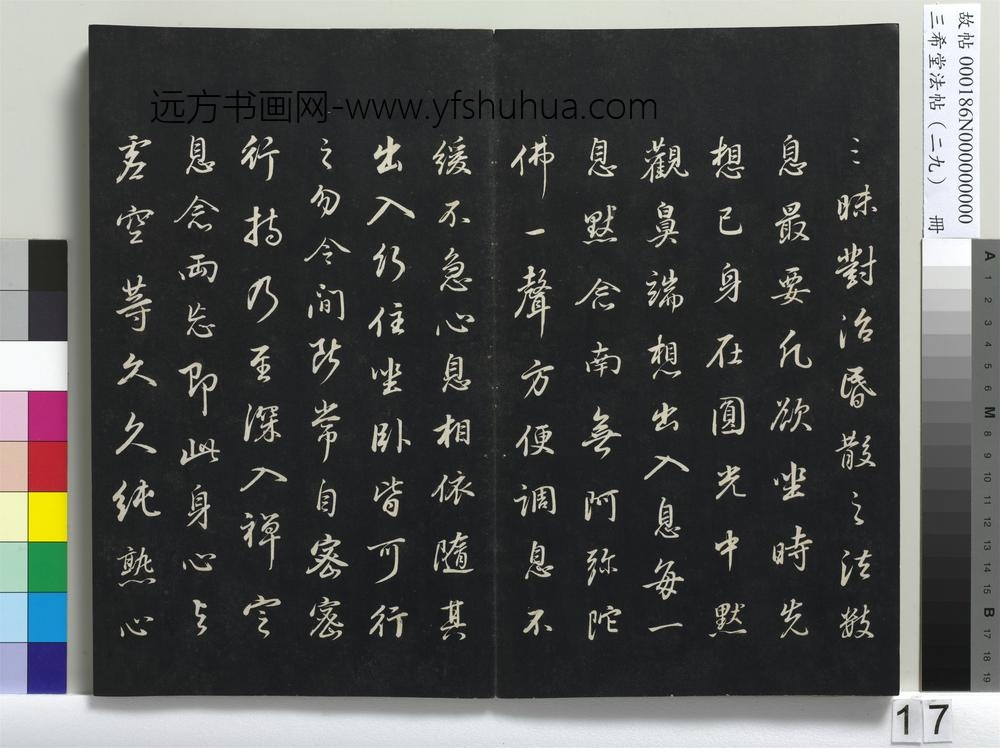 三昧對治昏散之法數
息最要凡欲坐時先
想已身在圓光中默
觀鼻端想出入息每一
息默念南無阿弥陀
佛一聲方便调息不
緩不急心息相依隨其
出入行住坐卧皆可行
之勿令间断常自密密
行持乃至深入禅定
息念兩忘即此身心与
虛空等久久純熟心
远方书画网-www.yfshuhua.com
故帖 000186N000000000
三希堂法帖（二九） 冊
A 1 2 3 4 5 6 M 8 9 10 11 12 13 14 15 B 17 18 19
17